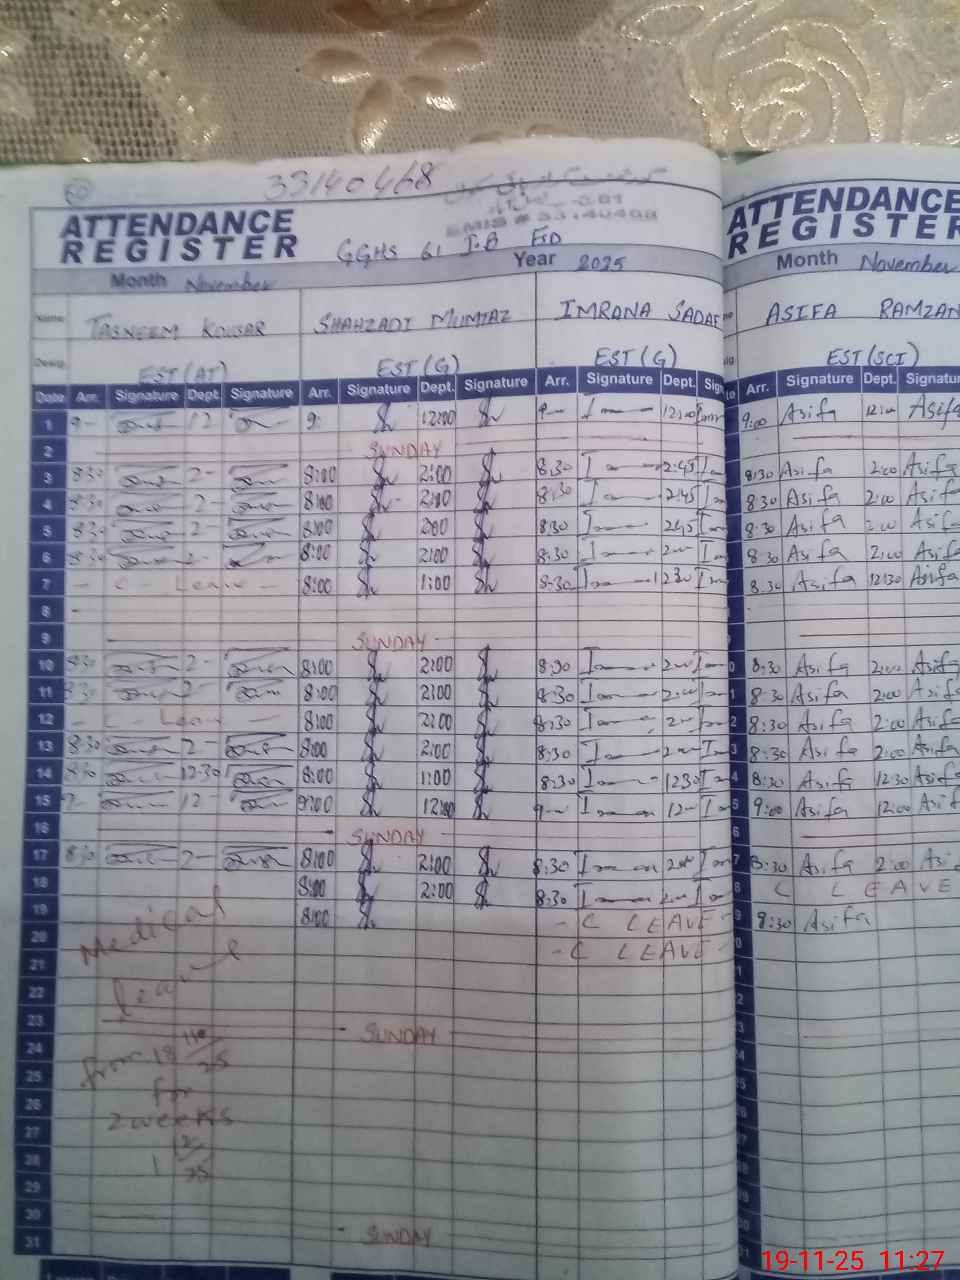 33140468
EMIS # 33140468
ATTENDANCE REGISTER
GGHS 61 J.B FSD
Month November Year 2025
Name TASNEEM KOUSAR SHAHZADI MUMTAZ IMRANA SADAF
Desig. EST (AT) EST (G) EST (G)
Date Arr. Signature Dept. Signature Arr. Signature Dept. Signature Arr. Signature Dept. Sign
1 9- 12- 9: 12:00 9- 12:00
2 SUNDAY
3 8:30 2- 8:00 2:00 8:30 2:45
4 8:30 2- 8:00 2:00 8:30 2:45
5 8:30 2- 8:00 2:00 8:30 2:45
6 8:30 2- 8:00 2:00 8:30 2-
7 - C - Leave - 8:00 1:00 8:30 1230
8
9 SUNDAY
10 8:30 2- 8:00 2:00 8:30 2:00
11 8:30 2- 8:00 2:00 8:30 2:00
12 - C - Leave - 8:00 2:00 8:30 2-
13 8:30 2- 8:00 2:00 8:30 2-
14 8:30 12-30 8:00 1:00 8:30 1230
15 9- 12- 9:00 12:00 9- 12-
16 SUNDAY
17 8:30 2- 8:00 2:00 8:30
18 8:00 2:00 8:30
19 8:00 - C LEAVE -
20 - C LEAVE -
21
22
23 SUNDAY
24
25
26
27
28
29
30
31 SUNDAY
Medical
leave
from 18
11
25
for
2 weeks
1
12
25
ATTENDANCE
REGISTER
Month November
ASIFA RAMZAN
EST (SCI)
Arr. Signature Dept. Signatur
9:00 Asifa 12:00 Asifa
8:30 Asifa 2:00 Asifa
8:30 Asifa 2:00 Asifa
8:30 Asifa 2:00 Asifa
8:30 Asifa 2:00 Asifa
8:30 Asifa 12:30 Asifa
8:30 Asifa 2:00 Asifa
8:30 Asifa 2:00 Asifa
8:30 Asifa 2:00 Asifa
8:30 Asifa 2:00 Asifa
8:30 Asifa 12:30 Asifa
9:00 Asifa 12:00 Asif
8:30 Asifa 2:00 Asi
C LEAVE
8:30 Asifa
19-11-25 11:27